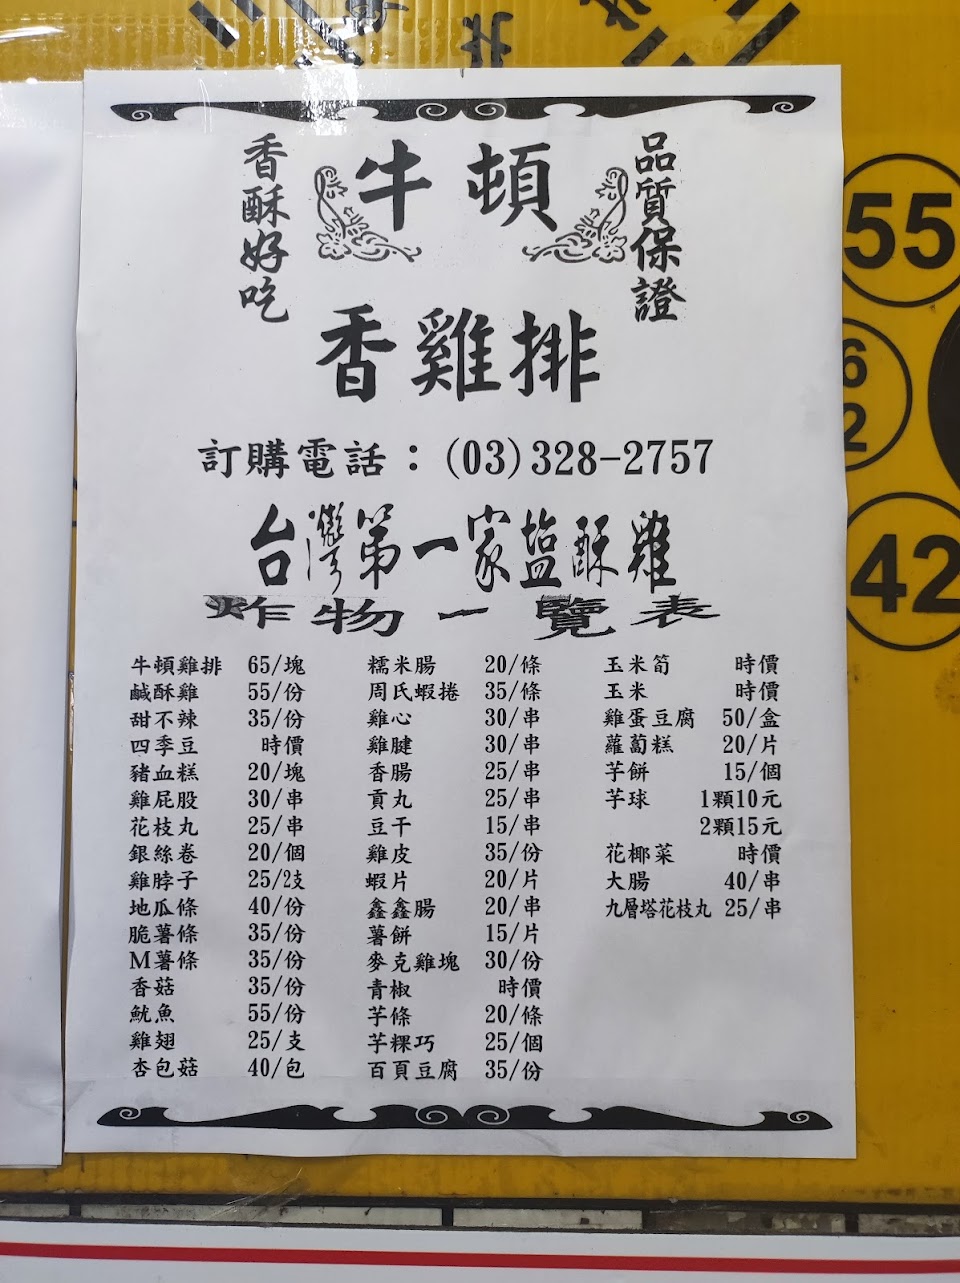 香酥好吃
牛頓
品質保證
香雞排
訂購電話：(03)328-2757
台灣第一家塩酥雞
炸物一覽表
牛頓雞排 65/塊
鹹酥雞 55/份
甜不辣 35/份
四季豆 時價
豬血糕 20/塊
雞屁股 30/串
花枝丸 25/串
銀絲卷 20/個
雞脖子 25/2支
地瓜條 40/份
脆薯條 35/份
M薯條 35/份
香菇 35/份
魷魚 55/份
雞翅 25/支
杏包菇 40/包
糯米腸 20/條
周氏蝦捲 35/條
雞心 30/串
雞腱 30/串
香腸 25/串
貢丸 25/串
豆干 15/串
雞皮 35/份
蝦片 20/片
鑫鑫腸 20/串
薯餅 15/片
麥克雞塊 30/份
青椒 時價
芋條 20/條
芋粿巧 25/個
百頁豆腐 35/份
玉米筍 時價
玉米 時價
雞蛋豆腐 50/盒
蘿蔔糕 20/片
芋餅 15/個
芋球 1顆10元
2顆15元
花椰菜 時價
大腸 40/串
九層塔花枝丸 25/串
55
6
2
42